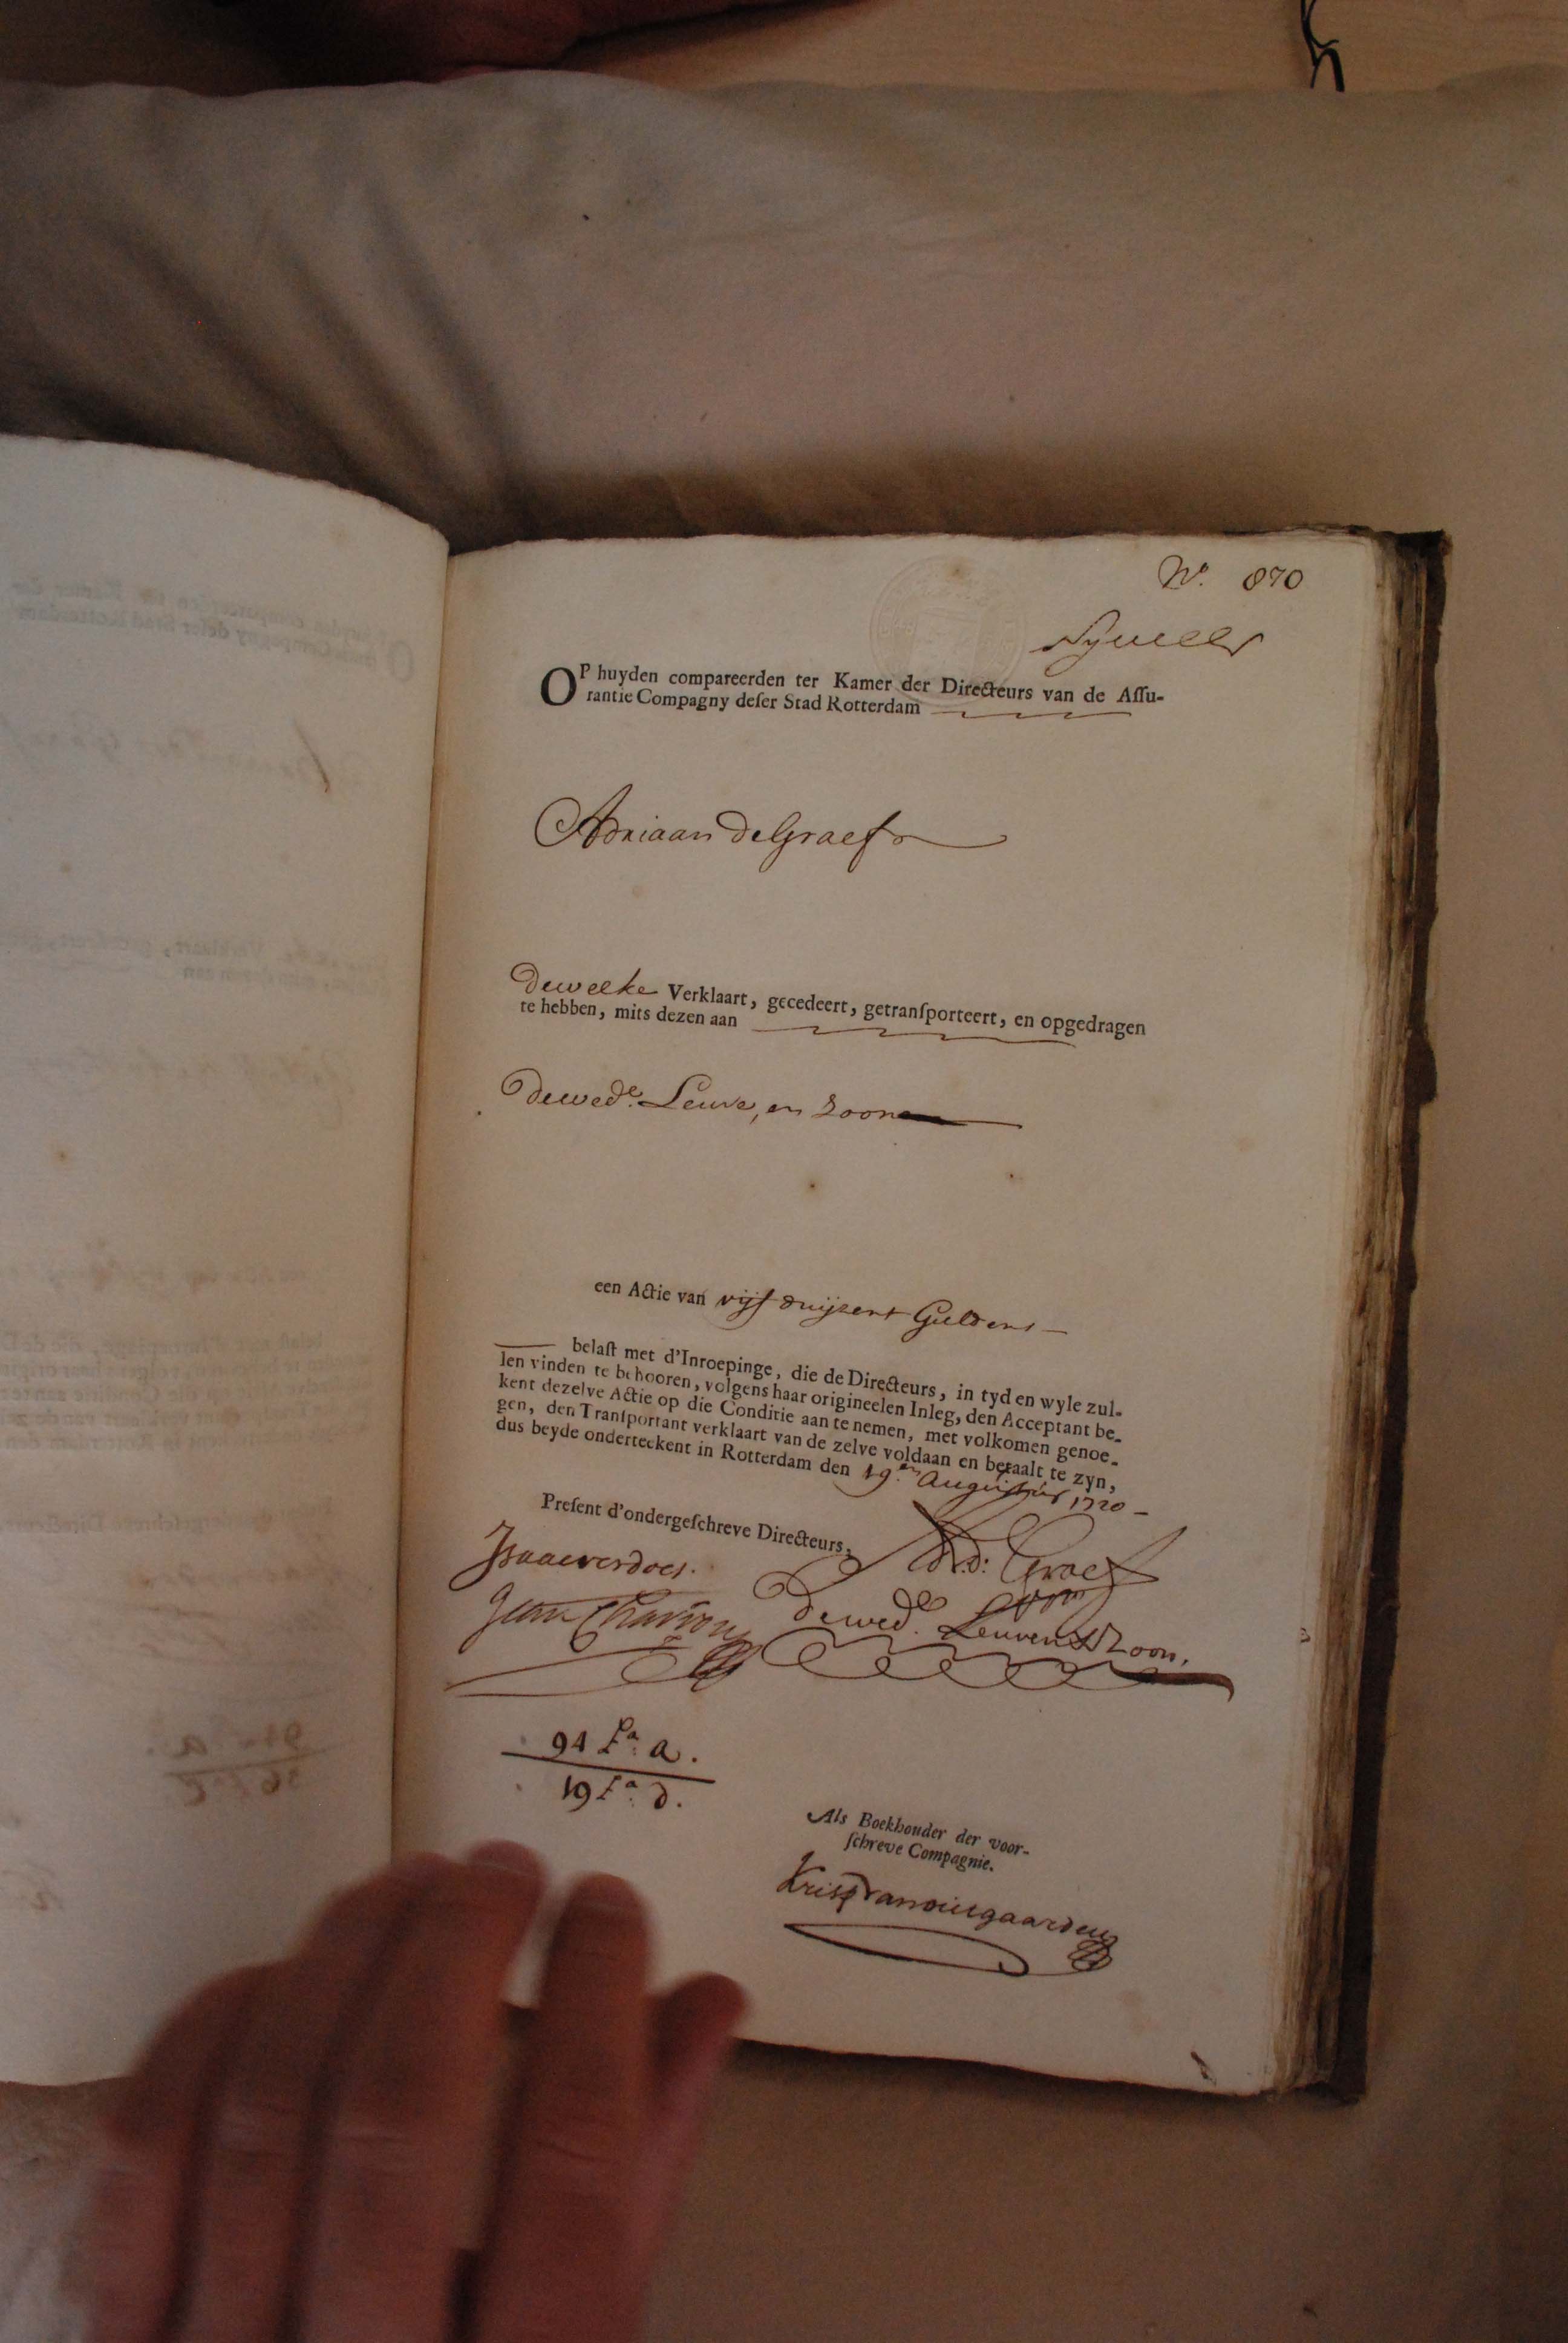 No. 870
OP huyden compareerden ter Kamer der Directeurs van de Assu-
rantie Compagny deser Stad Rotterdam
Adriaan de Graef
dewelke Verklaart, gecedeert, getransporteert, en opgedragen
te hebben, mits dezen aan
de wede. Leuve, en Zoon
een Actie van vijf duijzent Guldens
belast met d'Inroepinge, die de Directeurs, in tyd en wyle zul-
len vinden te behooren, volgens haar origineelen Inleg, den Acceptant be-
kent dezelve Actie op die Conditie aan te nemen, met volkomen genoe-
gen, den Transportant verklaart van de zelve voldaan en betaalt te zyn,
dus beyde onderteekent in Rotterdam den 19en Augustus 1720
Present d'ondergeschreve Directeurs,
A. d: Graef
Isaac verdoes.
de wede. Leuven & Zoon.
Jean Charron
94 Fa: a.
19 Fa: d.
Als Boekhouder der voor-
schreve Compagnie.